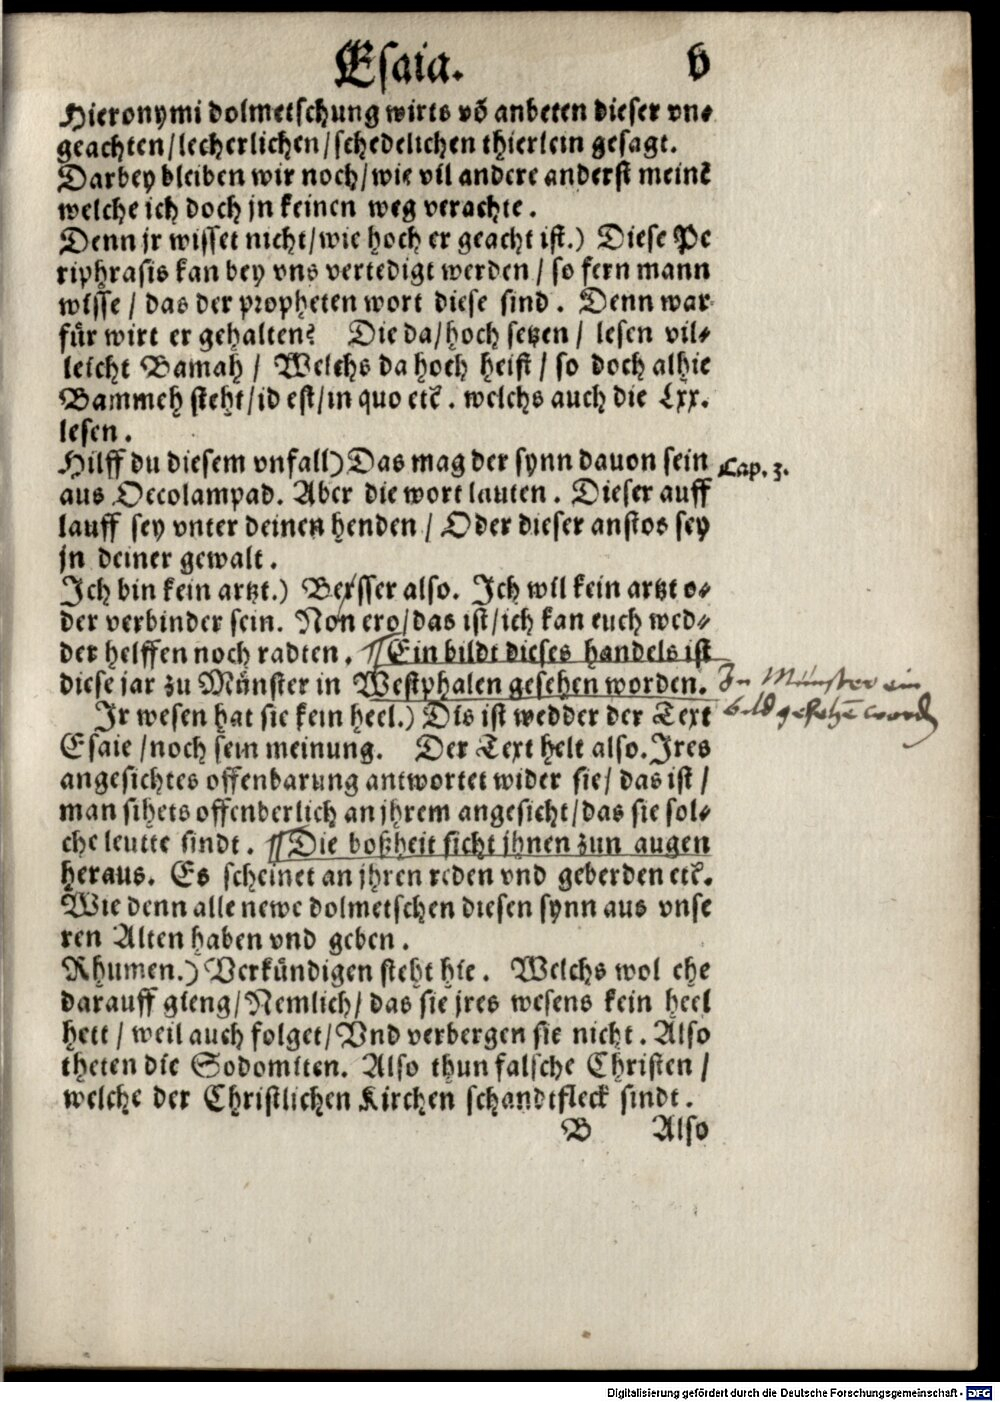 Esaia. 6
Hieronymi dolmetschung wirts võ anbeten dieser vn⸗
geachten/lecherlichen/schedelichen thierlein gesagt.
Darbey bleiben wir noch/wie vil andere anderst meinẽ
welche ich doch jn keinen weg verachte.
Denn jr wisset nicht/wie hoch er geacht ist.) Diese Pe
riphrasis kan bey vns vertedigt werden / so fern mann
wisse / das der propheten wort diese sind. Denn war
für wirt er gehalten? Die da/hoch setzen / lesen vil⸗
leicht Bamah / Welchs da hoch heist / so doch alhie
Bammeh steht/id est/in quo etc̃. welchs auch die Lxx.
lesen.
Hilff du diesem vnfall) Das mag der synn dauon sein
Cap. 3.
aus Oecolampad. Aber die wort lauten. Dieser auff
lauff sey vnter deinen henden / Oder dieser anstos sey
jn deiner gewalt.
Ich bin kein artzt.) Besser also. Ich wil kein artzt o⸗
der verbinder sein. Non ero/das ist/ich kan euch wed⸗
der helffen noch radten. Ein bildt dieses handels ist
diese jar zu Münster in Westphalen gesehen worden.
In Münster ein
bild gesehẽ word
Jr wesen hat sie kein heel.) Dis ist wedder der Text
Esaie /noch sein meinung. Der Text helt also. Jres
angesichtes offenbarung antwortet wider sie/ das ist /
man sihets offenderlich an jhrem angesicht/das sie sol⸗
che leutte sindt. Die boßheit sicht jhnen zun augen
heraus. Es scheinet an jhren reden vnd geberden etc̃.
Wie denn alle newe dolmetschen diesen synn aus vnse
ren Alten haben vnd geben.
Rhumen.) Verkündigen steht hie. Welchs wol ehe
darauff gieng/Nemlich/ das sie jres wesens kein heel
hett / weil auch folget/Vnd verbergen sie nicht. Also
theten die Sodomiten. Also thun falsche Christen /
welche der Christlichen Kirchen schandtfleck sindt.
B Also
Digitalisierung gefördert durch die Deutsche Forschungsgemeinschaft - DFG